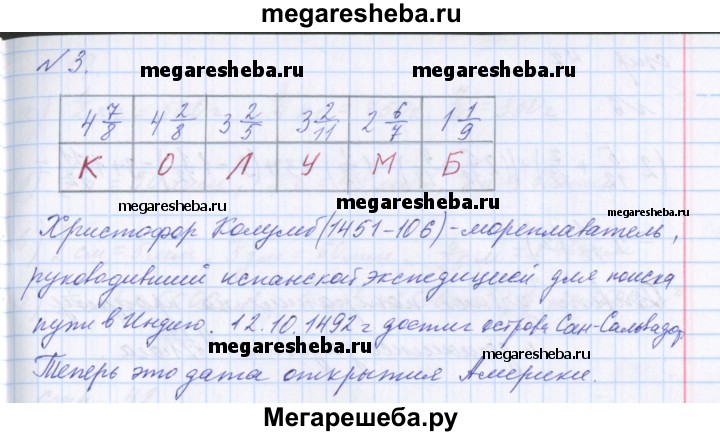 megaresheba.ru
№3.
megaresheba.ru megaresheba.ru
4 7/8 4 2/8 3 2/5 3 2/11 2 6/7 1 1/9
К О Л У М Б
megaresheba.ru megaresheba.ru
Христофор Колумб (1451-106) - мореплаватель,
руководивший испанской экспедицией для поиска
пути в Индию. 12.10.1492 г достиг острова Сан-Сальвадор
megaresheba.ru megaresheba.ru
Теперь это дата открытия Америки.
Мегарешеба.ру